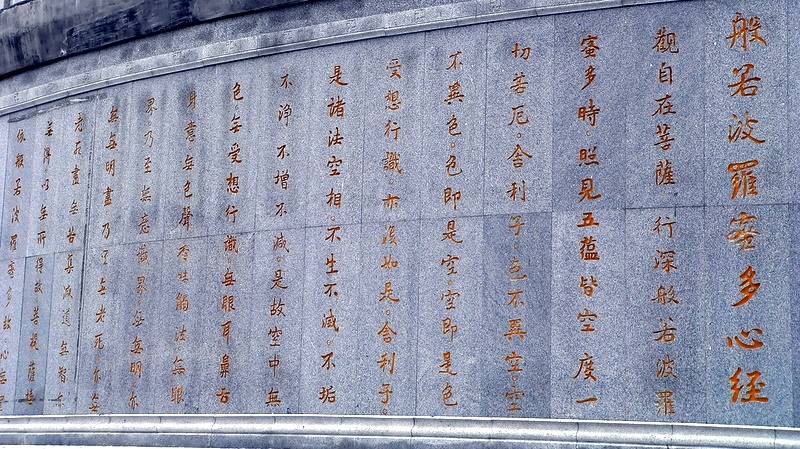 般若波羅蜜多心経
觀自在菩薩。行深般若波羅
蜜多時。照見五蘊皆空度一
切苦厄。舍利子。色不異空。空
不異色。色即是空。空即是色
受想行識。亦復如是。舍利子。
是諸法空相。不生不滅。不垢
不淨不增不減。是故空中無
色無受想行識無眼耳鼻舌
身意無色聲香味觸法無眼
界乃至無意識界。無無明。亦
無無明盡乃至無老死亦無
老死盡無苦集滅道無智亦
無得以無所得故菩提薩埵
依般若波羅蜜多故心無